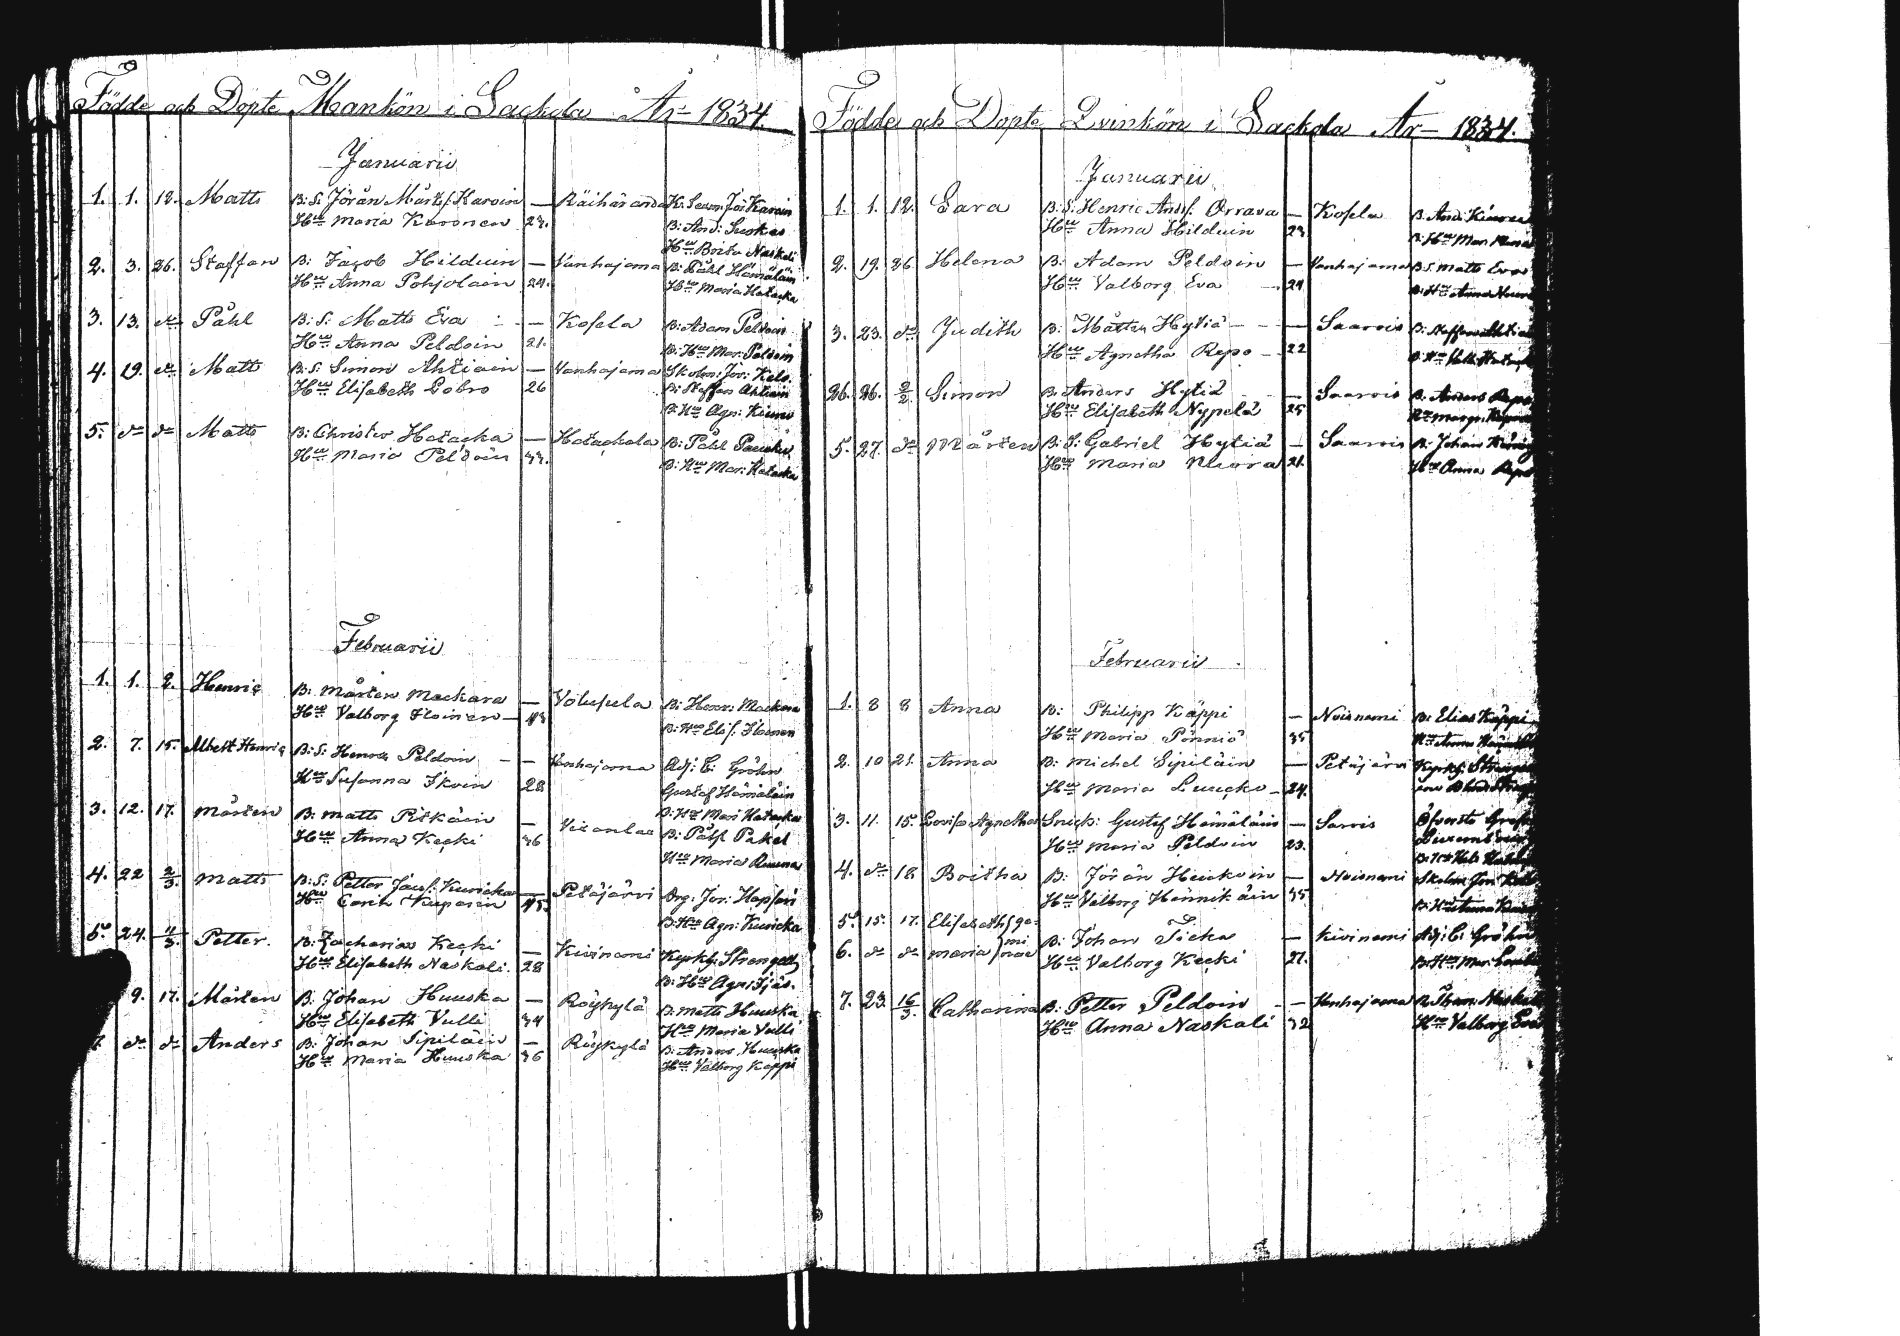 Födde och Döpte Mankön i Sackola År 1834.
Januarii
1. 1. 12. Matts B: S: Jöran Mårts: Karoin — Räihäranda K: Jör Karoin
Hu Maria Karonen 23. B: And: Suokas
Hu Brita Naskali
2. 3. 26. Staffan B: Jacob Hilduin — Vanhajama B: Påhl Hämäläin
Hu Anna Pohjolain 24. Hu Maria Hatacka
3. 13. do Påhl B: S: Matts Eva — Kosela B: Adam Peldoin
Hu Anna Peldoin 21. B: Hu Mar: Peldoin
4. 19. do Matts B: S: Simon Ahtiain — Vanhajama Skolm: Jör: Kelo.
Hu Elisabeth Lobro 26 B: Staffan Ahtiain
B: Hu Agn: Kiuru
5. do do Matts B: Christer Hatacka — Hatackala B: Påhl Paucku
Hu Maria Peldoin 33. B: Hu Mar: Hatacka
Februarii
1. 1. 2. Henric B: Mårten Mackara — Volusula B: Henr: Mackara
Hu Valborg Iloinen — 43 B: Hu Elis: Iloinen
2. 7. 15. Albert Henric B: S: Henric Peldoin — Vanhajama Adj: C: Gröhn
Hu Susanna Ikoin 28 Gustaf Hämäläin
B: Hu Mari Hatacka
3. 12. 17. Mårten B: Matts Pitkäin — B: Påhl Pakel
Hu Anna Kecki 36 Hu Maria Ruuna
4. 22 2/3. Matts B: S: Petter Jacs: Kuricka — Petäjärvi Org: Jör: Hapsoi
Hu Carin Kuparin 45. B: Hu Agn: Kuricka
5. 24. 4/3. Petter. B: Zacharias Kecki — Kivinemi Kyrkh: Strangell
Hu Elisabeth Naskali. 28 B: Hu Agn: Ijäs.
9. 17. Mårten B: Johan Huuska — Röykylä B: Matts Huuska
Hu Elisabeth Vulli 34 Hu Maria Vulli
7. do do Anders B: Johan Sipiläin — Röykylä B: Anders Huuska
Hu Maria Huuska 36 Hu Valborg Käppi
Födde och Döpte Qvinkön i Sackola År 1834.
Januarii
1. 1. 12. Sara B: S: Henric Ands: Orrava — Kosela B: And: Kiuru
Hu Anna Hilduin 23 B: Hu Mar:
2. 19. 26 Helena B: Adam Peldoin — Vanhajama B: S: Matts Eva
Hu Valborg Eva 24 B: Hu Anna
3. 23. do Judith B: Mårten Hytiä — Saarois B: Staffan Ahtia
Hu Agnetha Repo — 22 B: Hu
26. 26. 2/2. Simon B: Anders Hytiä — Saarois B: Anders Repo
Hu Elisabeth Nypelä 25 Hu Margr:
5. 27. do Mårten B: S: Gabriel Hytiä — Saarois B: Johan
Hu Maria Nuora 21. Hu Anna Repo
Februarii
1. 8 8 Anna B: Philipp Käppi — Noisnemi B: Elias Käppi
Hu Maria Pönniö 35 Hu Anna
2. 10 21. Anna B: Michel Sipiläin — Petäjärvi Kyrkh:
Hu Maria Luucko — 24.
3. 11. 15. Lovisa Agnetha Snick: Gustaf Hämäläin — Sarois Öfverste
Hu Maria Peldoin 23.
B: Hu
4. do 18 Boitha B: Jöran Heickoin — Noisnemi Skolm: Jör: Kelo
Hu Valborg Hännikäin 35 B: Hu Anna
5. 15. 17. Elisabeth } ge-
6. do do Maria } mi nae B: Johan Ticka — Kivinemi Adj: C: Gröhn
Hu Valborg Kecki 27. B: Hu Mar:
7. 23. 16/3. Catharina B: Petter Peldoin — Vanhajama B: Thom: Naskali
Hu Anna Naskali 32 Hu Valborg Eva